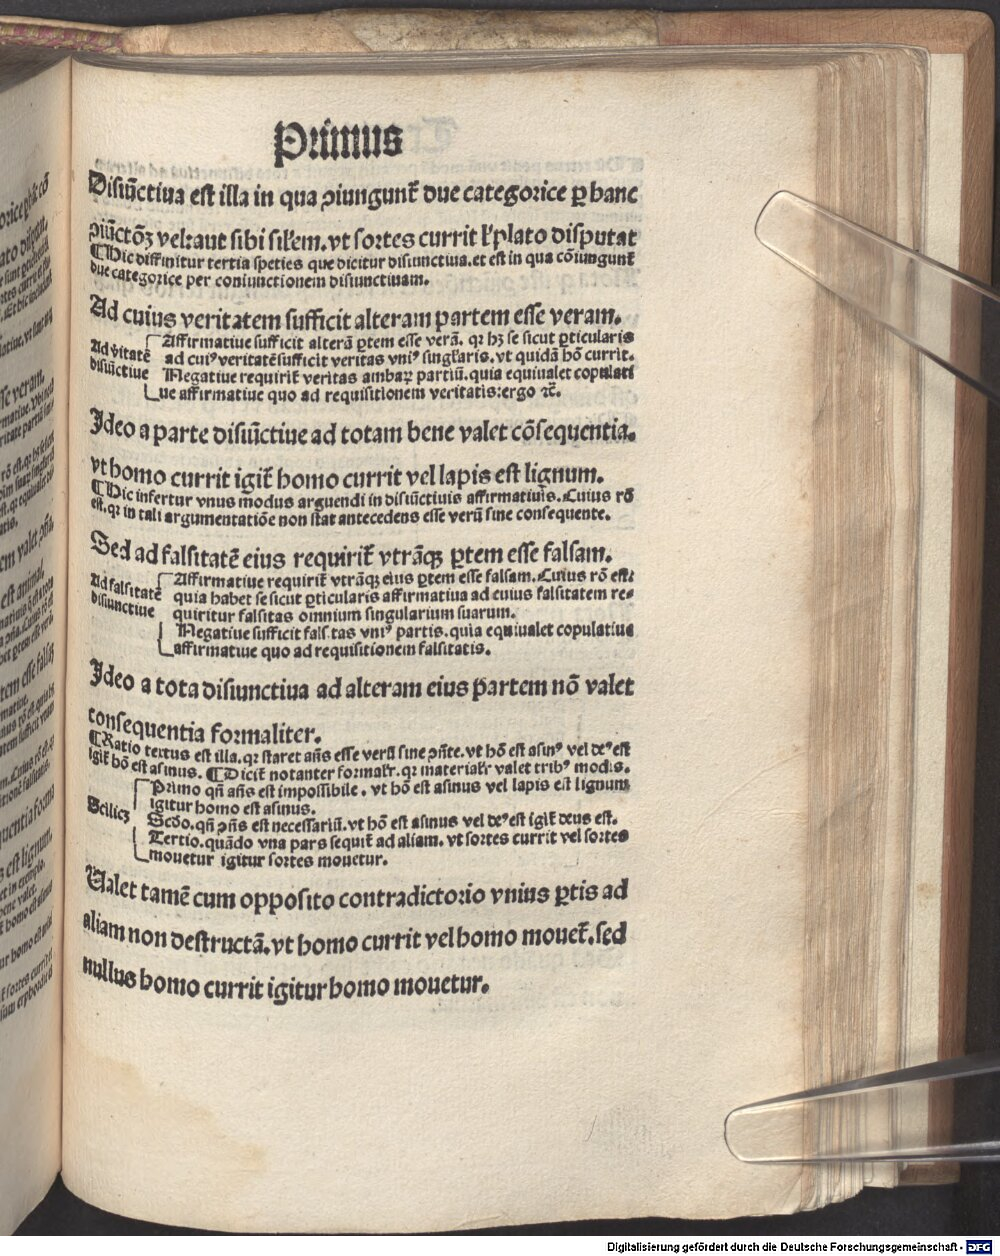 Primus
Disiūctiua est illa in qua ꝯiungunt᷑ due categorice ꝑ hanc
ꝯiūctōꝫ vel: aut sibi sil'em. vt sortes currit l' plato disputat
¶ Hic diffinitur tertia speties que dicitur disiunctiua. et est in qua cōiungunt᷑
due categorice per coniunctionem disiunctiuam.
Ad cuius veritatem sufficit alteram partem esse veram.
Affirmatiue sufficit alterā ꝑtem esse verā. qꝛ hꝫ se sicut ꝑticularis
Ad vitatē
disiūctiue
ad cuiꝰ veritatē sufficit veritas vniꝰ singl'aris. vt quidā hō currit.
Negatiue requirit᷑ veritas ambaꝝ partiū. quia equiualet copulati
ue affirmatiue quo ad requisitionem veritatis: ergo ⁊c̄.
Ideo a parte disiūctiue ad totam bene valet cōsequentia.
vt homo currit igit᷑ homo currit vel lapis est lignum.
¶ Hic infertur vnus modus arguendi in disiūctiuis affirmatiuis. Cuius rō
est. qꝛ in tali argumentatiōe non stat antecedens esse verū sine consequente.
Sed ad falsitatē eius requirit᷑ vtrāqꝫ ꝑtem esse falsam.
Affirmatiue requirit᷑ vtrāqꝫ eius ꝑtem esse falsam. Cuius rō est:
Ad falsitatē
disiunctiue
quia habet se sicut ꝑticularis affirmatiua ad cuius falsitatem re-
quiritur falsitas omnium singularium suarum.
Negatiue sufficit falsitas vniꝰ partis. quia equiualet copulatiue
affirmatiue quo ad requisitionem falsitatis.
Ideo a tota disiunctiua ad alteram eius partem nō valet
consequentia formaliter.
¶ Ratio textus est illa. qꝛ staret añs esse verū sine ꝯñte. vt hō est asinꝰ vel deꝰ est
igit᷑ hō est asinus. ¶ Dicit᷑ notanter formal'r. qꝛ material'r valet tribꝰ modis.
Primo qñ añs est impossibile. vt hō est asinus vel lapis est lignum
igitur homo est asinus.
Scilicꝫ
Scd̄o. qñ ꝯñs est necessariū. vt hō est asinus vel deꝰ est igit᷑ deus est.
Tertio. quādo vna pars sequit᷑ ad aliam. vt sortes currit vel sortes
mouetur igitur sortes mouetur.
Valet tamē cum opposito contradictorio vnius ꝑtis ad
aliam non destructā. vt homo currit vel homo mouet᷑. sed
nullus homo currit igitur homo mouetur.
Digitalisierung gefördert durch die Deutsche Forschungsgemeinschaft - DFG